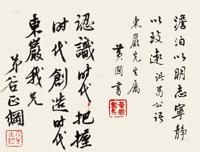 澹泊以明志寧靜
以致遠 諸葛公語
東巖先生屬
黃國書
認識時代把握
時代創造時代
東巖我兄
弟谷正綱